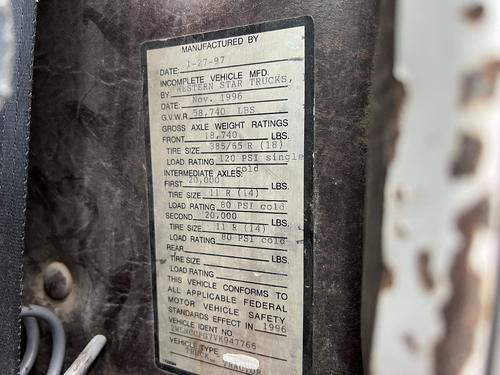 MANUFACTURED BY
DATE: 1-27-97
INCOMPLETE VEHICLE MFD.
BY WESTERN STAR TRUCKS,
DATE: Nov. 1996
G.V.W.R 58,740 LBS
GROSS AXLE WEIGHT RATINGS
FRONT 18,740 LBS.
TIRE SIZE 385/65 R (18)
LOAD RATING 120 PSI single
cold
INTERMEDIATE AXLES:
FIRST 20,000 LBS.
TIRE SIZE 11 R (14)
LOAD RATING 80 PSI cold
SECOND 20,000 LBS.
TIRE SIZE 11 R (14)
LOAD RATING 80 PSI cold
REAR LBS.
TIRE SIZE
LOAD RATING
THIS VEHICLE CONFORMS TO
ALL APPLICABLE FEDERAL
MOTOR VEHICLE SAFETY
STANDARDS EFFECT IN 1996
VEHICLE IDENT NO
VEHICLE TYPE
TRUCK TRACTOR